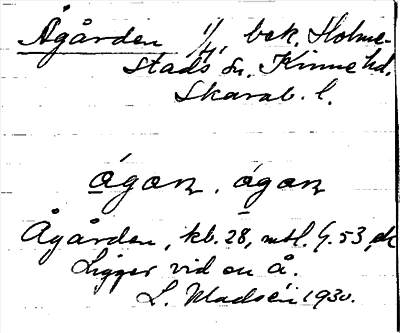 Ågården 1/4, bek. Holme-
stads sn. Kinne hd.
Skarab. l.
ågon, ågon
Ågården, kb. 28, mtl. G. 53,
Ligger vid en å.
L. Madsén 1930.